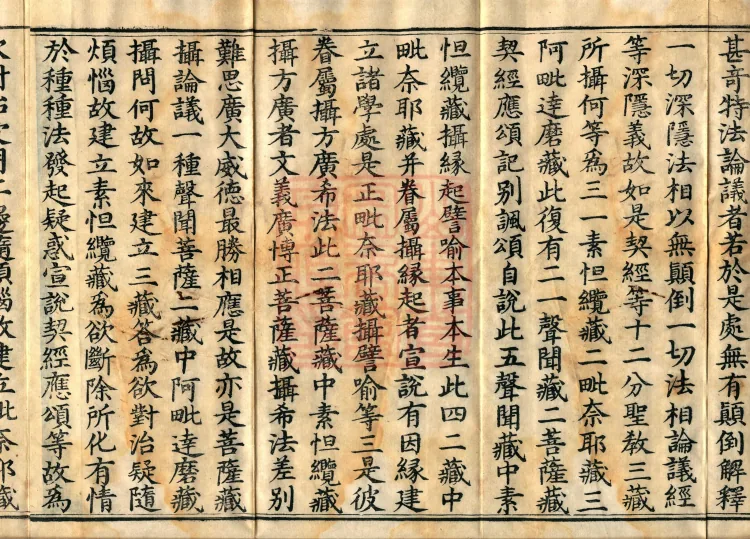 甚竒特法論議者若於是處無有顛倒解釋
一切深隱法相以無顛倒一切法相論議經
等深隱義故如是契經等十二分聖教三藏
所攝何等為三一素怛纜藏二毗奈耶藏三
阿毗達磨藏此復有二一聲聞藏二菩薩藏
契經應頌記別諷頌自說此五聲聞藏中素
怛纜藏攝緣起譬喻本事本生此四二藏中
毗奈耶藏并眷屬攝緣起者宣說有因緣建
立諸學處是正毗奈耶藏攝譬喻等三是彼
眷屬攝方廣希法此二菩薩藏中素怛纜藏
攝方廣者文義廣博正菩薩藏攝希法差別
難思廣大威德最勝相應是故亦是菩薩藏
攝論議一種聲聞菩薩二藏中阿毗達磨藏
攝問何故如來建立三藏答為欲對治疑隨
煩惱故建立素怛纜藏為欲斷除所化有情
於種種法發起疑惑宣說契經應頌等故為